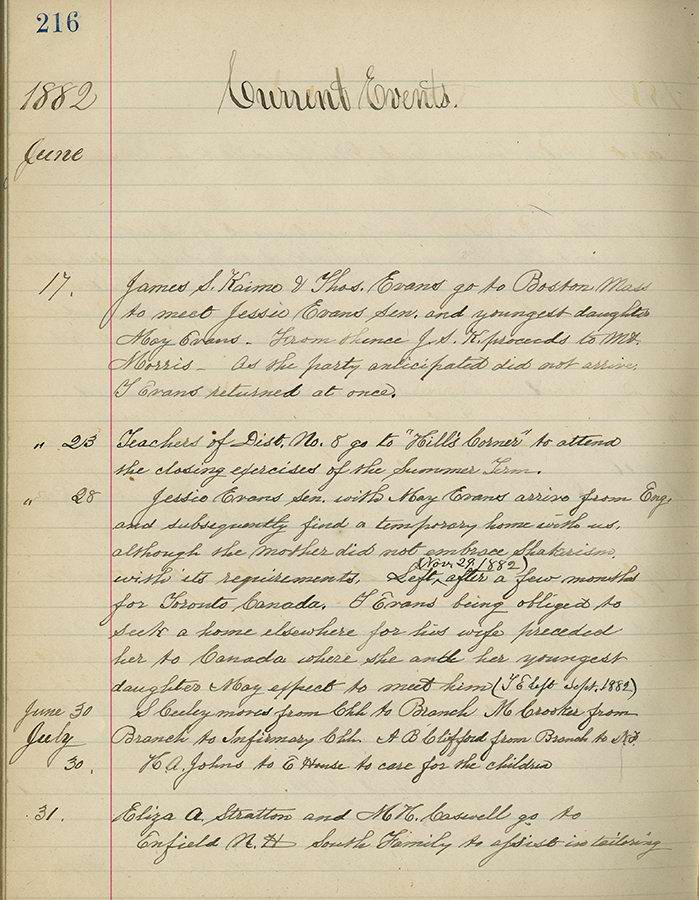 216
1882 Current Events.
June
17. James S. Kaime & Thos. Evans go to Boston Mass
to meet Jessie Evans Sen. and youngest daughter
May Evans. From thence J. S. K. proceeds to Mt.
Morris - As the party anticipated did not arrive,
T Evans returned at once.
" 23 Teachers of Dist. No. 8 go to "Hill's Corner" to attend
the closing exercises of the Summer Term.
" 28 Jessie Evans Sen. with May Evans arrive from Eng,
and subsequently find a temporary home with us,
although the mother did not embrace Shakerism
(Nov. 29, 1882)
with its requirements. Left, after a few months
for Toronto Canada. T Evans being obliged to
seek a home elsewhere for his wife preceded
her to Canada where she and her youngest
daughter May expect to meet him (T E left Sept. 1882)
June 30 S Ceeley moves from Chh to Branch M Crooker from
July Branch to Infirmary Chh. A B Clifford from Branch to N.F.
30. H A. Johns to C House to care for the children
31. Eliza A. Stratton and M K. Caswell go to
Enfield N. H South Family to assist in tailoring